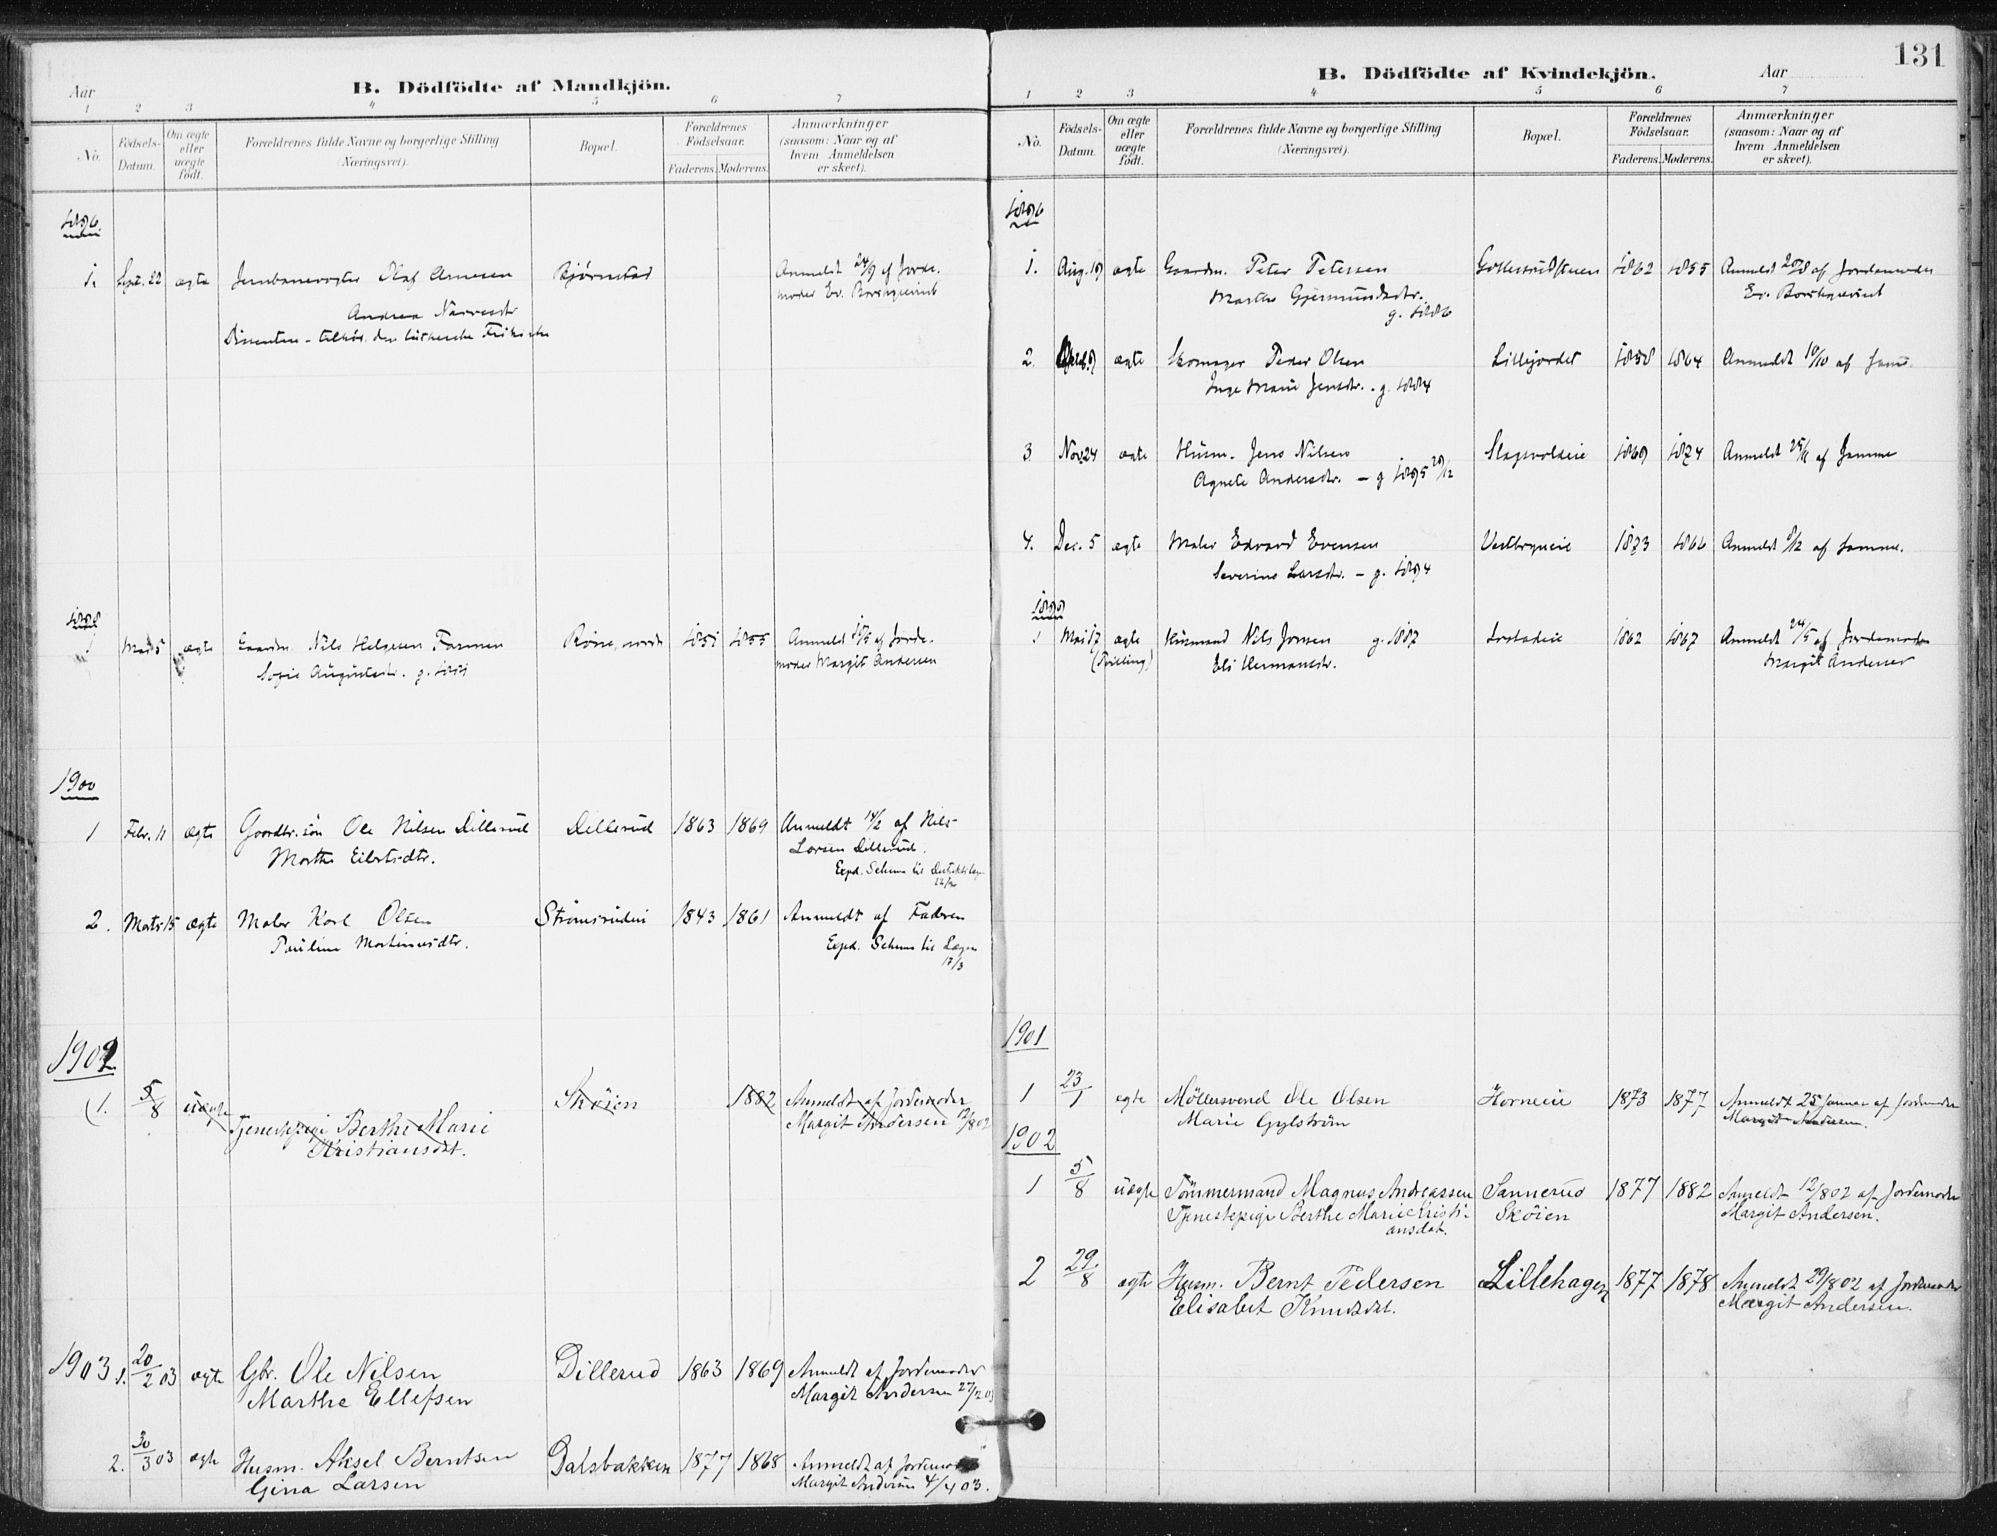 B. Dödfödte af Mandkjön.
Aar
1 2 3 4 5 6 7
No.
Fødsels-Datum.
Om ægte eller uægte født.
Forældrenes fulde Navne og borgerlige Stilling
(Næringsvei).
Bopæl.
Forældrenes Fødselsaar.
Faderens. Moderens.
Anmærkninger
(saasom: Naar og af
hvem Anmeldelsen
er skeet).
1896
1. Sept. 22 ægte Jernbanevogter Olaf Arnesen Bjørnstad Anmeldt 24/9 af Jorde-
Andrea moder Ev. Borchgrevink
Dissentere - tilhør. den lutherske Frikirke
1898
1 5 ægte Gaardm. Nils Helgesen 1851 1855 Anmeldt af Jorde-
Sofie Augustsdtr. g. moder Margit Andersen
1900
1 Febr. 11 ægte Gaardbr. søn Ole Nilsen Dillerud Dillerud 1863 1869 Anmeldt 14/2 af Nils
Marthe Larsen Dillerud.
Exped. Schema til
2. Marts 15 ægte Maler Karl Olsen 1843 1861 Anmeldt af Faderen
Pauline Martinusdtr. Exped. Schema til Lægen
17/3
1902
(1. 5/8 uægte Tjenestepige Berthe Marie Skøien 1882 Anmeldt af Jordemoder
Kristiansdat. Margit Andersen 12/8 02
1903 1. 20/2 03 ægte Gbr. Ole Nilsen Dillerud 1863 1869 Anmeldt af Jordemoder
Marthe Ellefsen Margit Andersen 27/2 03
2. 30/3 03 ægte Husm. Aksel Berntsen Dalsbakken 1877 1868 Anmeldt af Jordemoder
Gina Larsen Margit Andersen 4/4 03.
131
B. Dödfödte af Kvindekjön.
Aar
1 2 3 4 5 6 7
No.
Fødsels-Datum.
Om ægte eller uægte født.
Forældrenes fulde Navne og borgerlige Stilling
(Næringsvei).
Bopæl.
Forældrenes Fødselsaar.
Faderens. Moderens.
Anmærkninger
(saasom: Naar og af
hvem Anmeldelsen
er skeet).
1896
1. Aug. 19 ægte Gaardm. Peter Petersen 1862 1855 Anmeldt 20/8 af Jordemoder
Marthe Gjermundsdtr. Ev. Borchgrevink
g. 1886
2. ægte Skomager Peder Olsen Lillejordet 1858 1864 Anmeldt 10/10 af
Inge Marie Jensdtr. - g. 1884
3 Nov. 24 ægte Husm. Jens Nilsen Slagsvoldeie 1869 1874 Anmeldt 25/11 af Samme
Agnete Andersdtr. - g. 1895 29/12
4. Dec. 5 ægte Maler Edvard Evensen 1873 1866 Anmeldt af Samme.
Severine Larsdtr. - g. 1894
1899
1 Mai 17 ægte Husmand Nils Jonsen g. 1887 1862 1867 Anmeldt 24/5 af Jordemoder
(Tvilling) Eli Hermansdtr. Margit Andersen
1901
1 23/1 ægte Møllersvend Ole Olsen Horneie 1873 1877 Anmeldt 25 Januar af Jordemoder
Marie Gylstrøm Margit Andersen.
1902
1 5/8 uægte Tømmermand Magnus Andreassen Sannerud 1877 1882 Anmeldt 12/8 02 af Jordemoder
Tjenestepige Berthe Marie Kristi- Skøien Margit Andersen.
ansdat.
2 29/8 ægte Husm. Bernt Pedersen Lillehagen 1877 1878 Anmeldt 29/8 02 af Jordemoder
Elisabet Knudsdat. Margit Andersen.